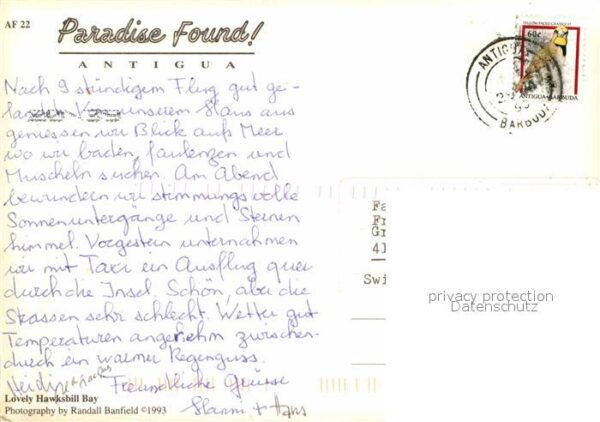 AF 22
Paradise Found!
ANTIGUA
Nach 9 stündigem Flug gut ge-
landet. Von unserem Haus aus
geniessen wir Blick aufs Meer
wo wir baden, faulenzen und
Muscheln suchen. Am Abend
bewundern wir stimmungsvolle
Sonnenuntergänge und Sternen
himmel. Vorgestern unternahmen
wir mit Taxi ein Ausflug quer
durch die Insel. Schön, aber die
Strassen sehr schlecht. Wetter gut
Temperaturen angenehm zwischen-
durch ein warmer Regenguss.
Freundliche Grüsse
Hanni + Hans
Lovely Hawksbill Bay
Photography by Randall Banfield ©1993
60c
ANTIGUA & BARBUDA
ANTIGUA
BARBUDA
Fa
Fr
Gr
41
Swi
privacy protection
Datenschutz